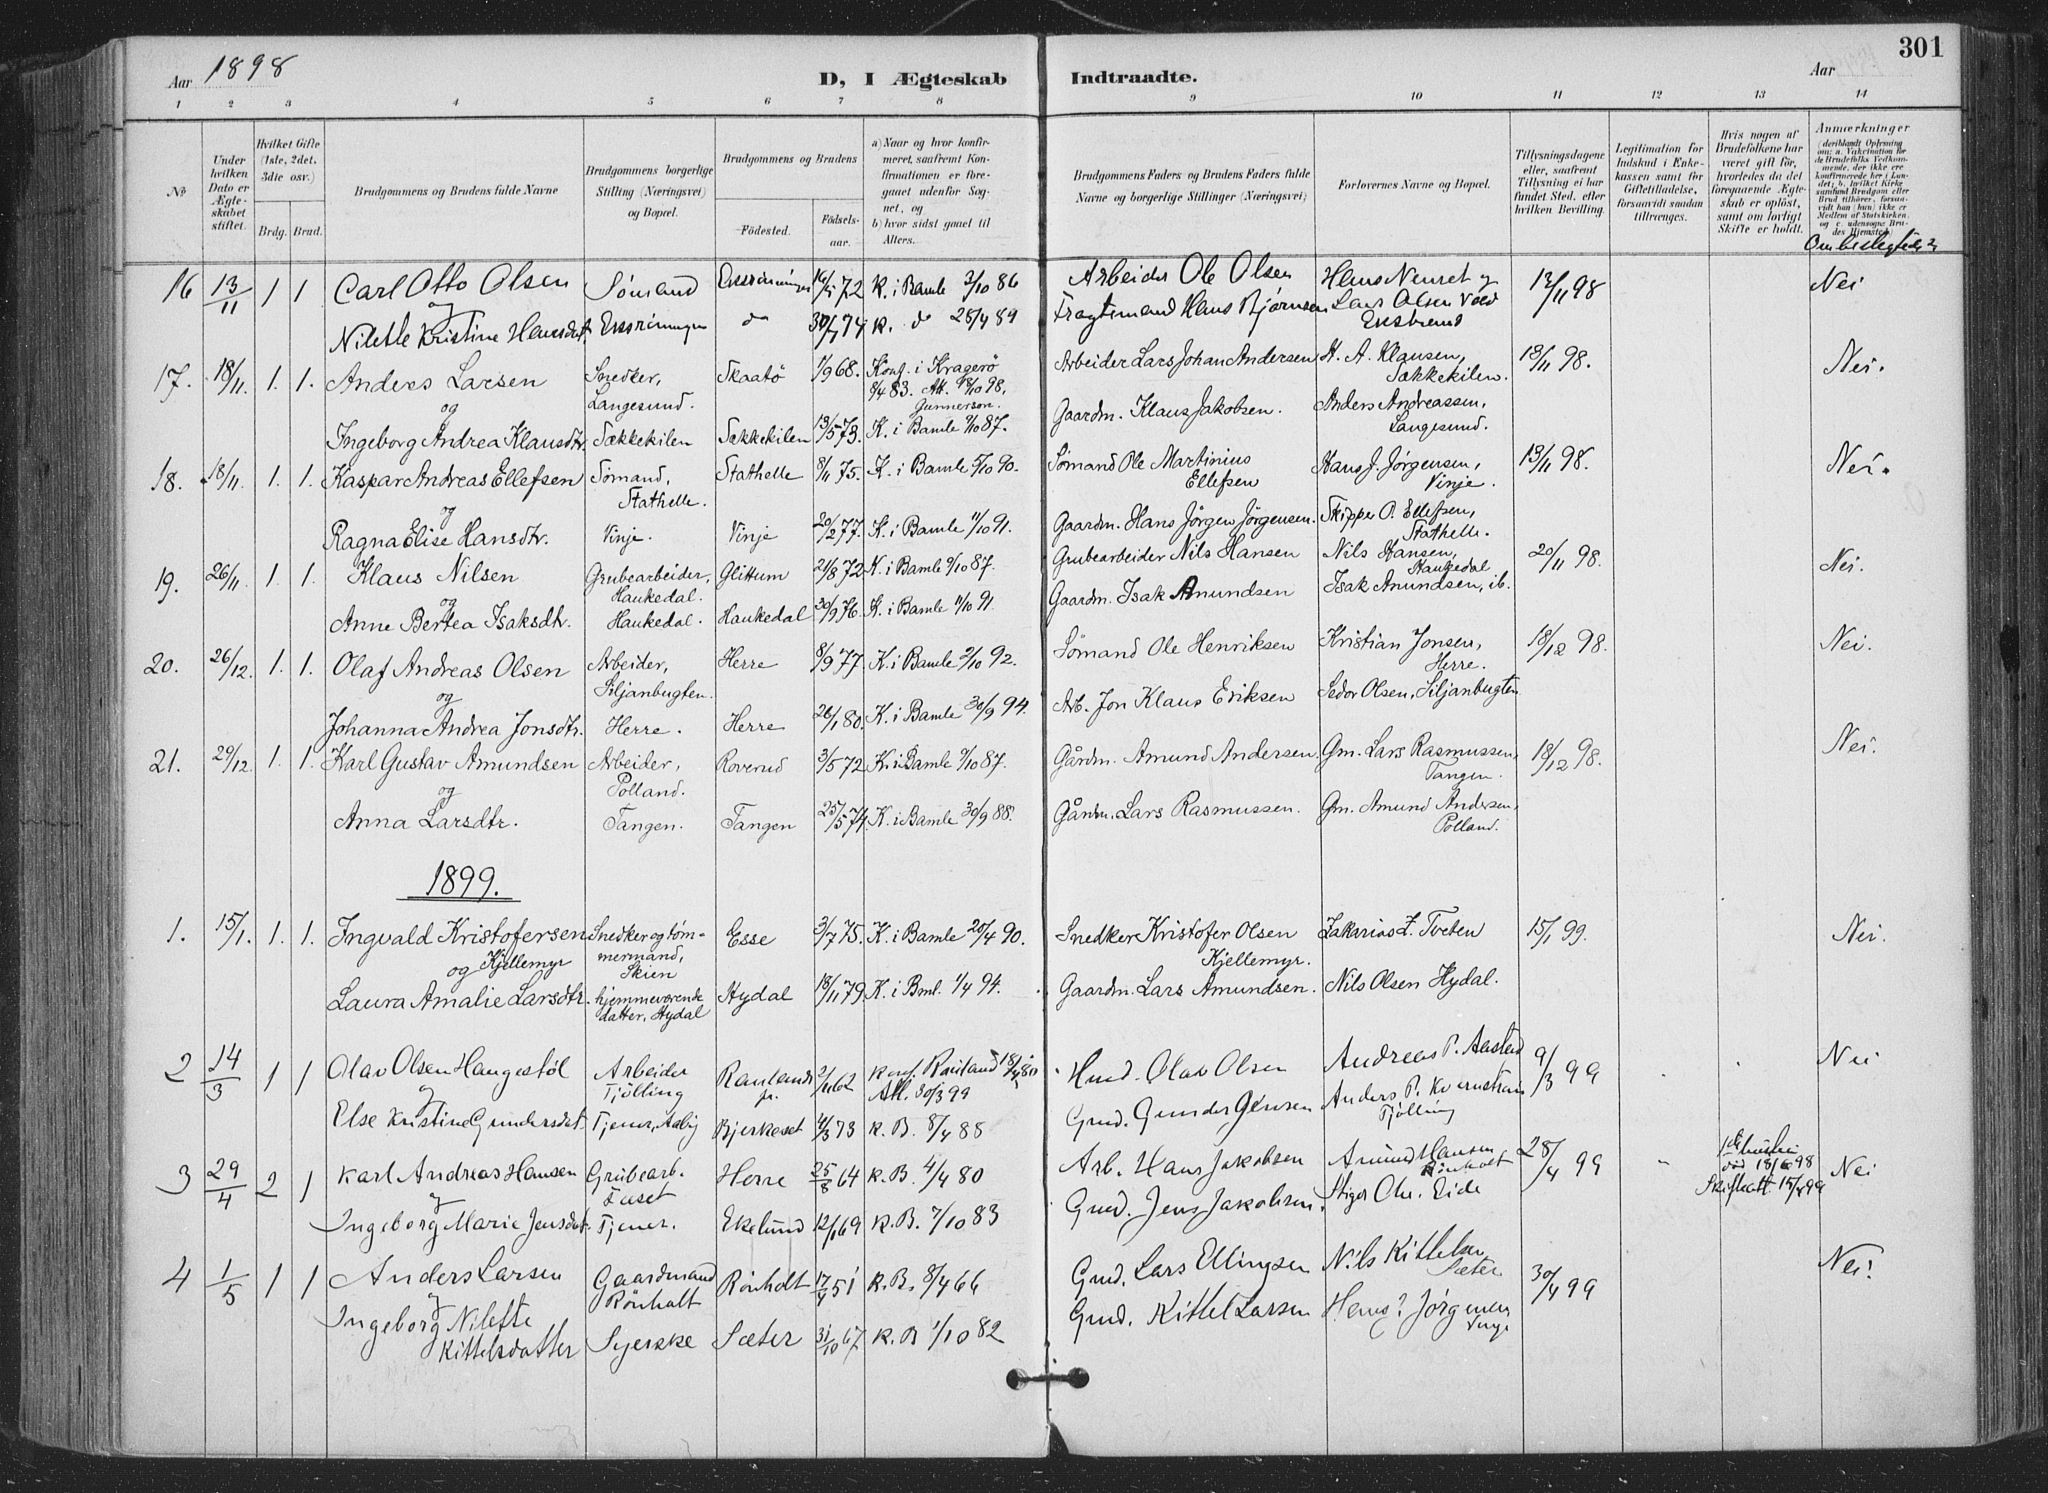 301
Aar 1898
D, I Ægteskab Indtraadte.
Aar
1 2 3 4 5 6 7 8 9 10 11 12 13 14
No
Under hvilken Dato er Ægteskabet stiftet.
Hvilket Gifte (1ste, 2det, 3die osv.)
Brdg. Brud.
Brudgommens og Brudens fulde Navne
Brudgommens borgerlige Stilling (Næringsvei) og Bopæl.
Brudgommens og Brudens
Födested.
Födselsaar.
a) Naar og hvor konfirmeret, saafremt Konfirmationen er foregaaet udenfor Sognet, og
b) hvor sidst gaaet til Alters.
Brudgommens Faders og Brudens Faders fulde Navne og borgerlige Stillinger (Næringsvei)
Forlovernes Navne og Bopæl.
Tillysningsdagene eller, saafremt Tillysning ei har fundet Sted, efter hvilken Bevilling.
Legitimation for Indskud i Enkekassen samt for Giftetilladelse, forsaavidt saadan tiltrænges.
Hvis nogen af Brudefolkene har været gift för, hvorledes da det foregaaende Ægteskab er oplöst, samt om lovligt Skifte er holdt.
Anmærkninger
16 13/11 1 1 Carl Otto Olsen Sömand 16/5 72 K. i Bamle 3/10 86 Arbeider Ole Olsen 13/11 98 Nei
og
Nilette Kristine Hansdat. do 30/7 74 K. do 28/4 89 Fragtemand Hans Bjørnsen Lars Olsen
17. 18/11. 1. 1. Anders Larsen Snedker, Langesund. Skaatö 1/9 68. Konf. i Kragerö 8/4 83. Att. 18/10 98, Gunnersen. Arbeider Lars Johan Andersen K. A. Klausen, Sækkekilen. 13/11 98. Nei.
og
Ingeborg Andrea Klausdtr. Sækkekilen Sækkekilen 13/5 73. K. i Bamle 9/10 87. Gaardm. Klaus Jakobsen. Anders Andreassen, Langesund.
18. 18/11. 1. 1. Kaspar Andreas Ellefsen Sömand, Stathelle. Stathelle 8/11 75. K. i Bamle 5/10 90. Sömand Ole Martinius Ellefsen Hans J. Jörgensen, Vinje. 13/11 98. Nei.
og
Ragna Elise Hansdtr. Vinje. Vinje 20/2 77. K. i Bamle 11/10 91. Gaardm. Hans Jörgen Jörgensen. Skipper O. Ellefsen, Stathelle.
19. 26/11. 1. 1. Klaus Nilsen Grubearbeider, Haukedal. Glittum 21/8 72. K. i Bamle 9/10 87. Grubearbeider Nils Hansen Nils Hansen, Haukedal 20/11 98. Nei.
og
Anne Bertea Isaksdtr. Haukedal. Haukedal 30/9 76. K. i Bamle 11/10 91. Gaardm. Isak Amundsen Isak Amundsen, ib.
20. 26/12. 1. 1. Olaf Andreas Olsen Arbeider, Siljanbugten. Herre 8/9 77. K. i Bamle 2/10 92. Sömand Ole Henriksen Kristian Jonsen, Herre. 18/12 98. Nei.
og
Johanna Andrea Jonsdtr. Herre. Herre 26/1 80. K. i Bamle 30/9 94. Arb. Jon Klaus Eriksen Sedor Olsen, Siljanbugten
21. 29/12. 1. 1. Karl Gustav Amundsen Arbeider, Polland. Roverud 3/5 72. K. i Bamle 9/10 87. Gårdm. Amund Andersen Gm. Lars Rasmussen, Tangen. 18/12 98. Nei.
og
Anna Larsdtr. Tangen. Tangen 25/5 74. K. i Bamle 30/9 88. Gårdm. Lars Rasmussen. Gm. Amund Andersen, Polland.
1899.
1. 15/1. 1. 1. Ingvald Kristofersen Kjellemyr Snedker og tømmermand, Skien Esse 3/7 75. K. i Bamle 20/4 90. Snedker Kristofer Olsen Kjellemyr. Zakarias Z. Tveten 15/1 99. Nei.
og
Laura Amalie Larsdtr. hjemmeværende datter, Hydal Hydal 18/11 79 K. i Bml. 1/4 94. Gaardm. Lars Amundsen. Nils Olsen Hydal.
2 14/3 1 1 Olav Olsen Haugestöl Arbeider Tjölling Raulands pr. 2/11 62 Konf. Rauland Att. 30/3 99 Hmd. Olav Olsen Andreas P. Aasted 9/3 99 Nei
og
Else Kristine Gundersdat. Tjener, Aaby Bjerkeset 4/3 73 K. B. 8/4 88 Gmd. Gunder Jensen Anders P. Tjölling
3 29/4 2 1 Karl Andreas Hansen Grubearb. Herre 25/8 64 K. B. 4/4 80 Arb. Hans Jakobsen Amund Hansen Rönholt 28/4 99 1ste hustru död 18/6 98 Skifteatt. 15/4 99 Nei
og
Ingeborg Marie Jensdat. Tjener. Ekelund 12/1 69 K. B. 7/10 83 Gmd. Jens Jakobsen. Stiger Chr. Eide
4 1/5 1 1 Anders Larsen Gaardmand Rönholt Rönholt 17/4 51 K. B. 8/4 66 Gmd. Lars Ellingsen Nils Kittelsen Sæter 30/4 99 Nei.
og
Ingeborg Nilette Kittelsdatter Syerske Sæter 31/10 67 K. B 1/10 82 Gmd. Kittel Larsen Hans Jörgensen Vinje